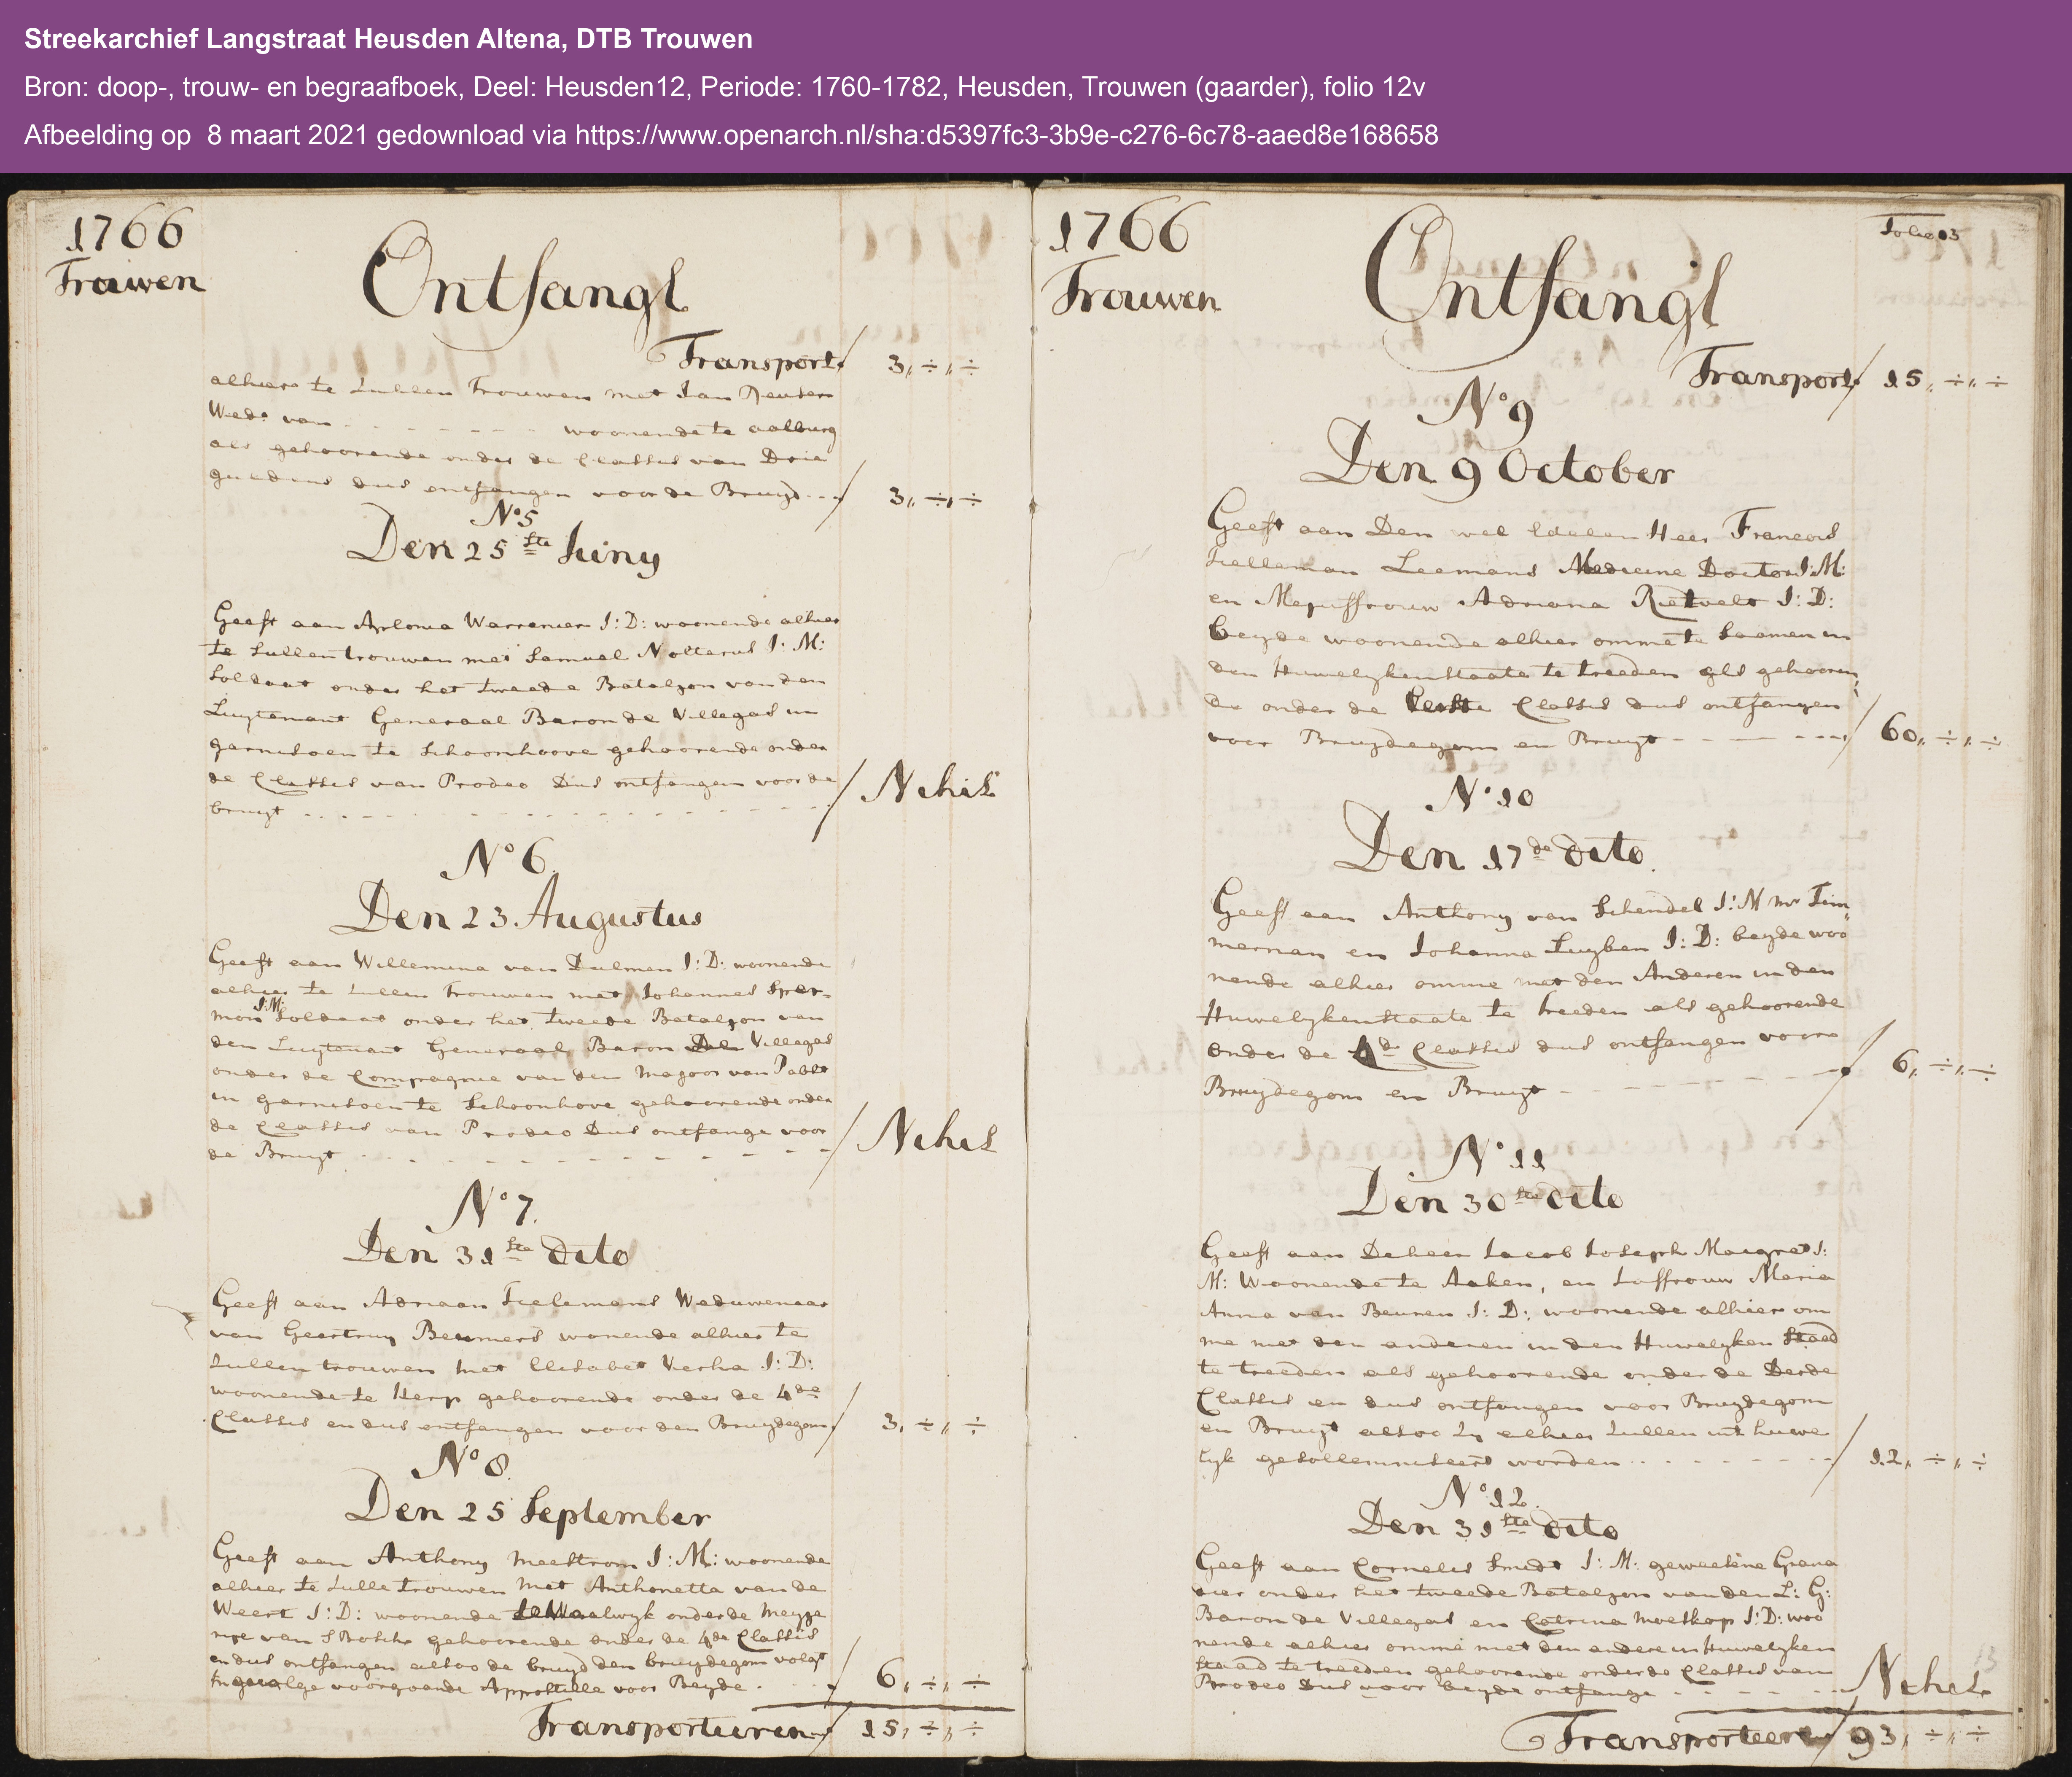 Streekarchief Langstraat Heusden Altena, DTB Trouwen
Bron: doop-, trouw- en begraafboek, Deel: Heusden12, Periode: 1760-1782, Heusden, Trouwen (gaarder), folio 12v
Afbeelding op 8 maart 2021 gedownload via https://www.openarch.nl/sha:d5397fc3-3b9e-c276-6c78-aaed8e168658
1766
Trouwen
Ontfangt
Transport 3,,÷,,÷
alhier te sullen Trouwen met Jan
Wede van - - - - - - - woonende te aalburg
als gehoorende onder de Classis van Drie
guldens dus ontfangen voor de Bruyd - - - 3,,÷,,÷
No 5
Den 25 ste Juny
Geeft aan Aplonia Warrenier J: D: woonende alhier
te sullen trouwen met Samuel Nolterus J: M:
Soldaat onder het tweede Bataljon van den
Luytenant Generaal Baron de Villegas in
garnisoen te Schoonhoove gehoorende onder
de Classis van Prodeo Dus ontfangen voor de
bruyt - - - - - - - - - - Nihil
No 6.
Den 23 Augustus
Geeft aan Willemina van Dulmen J: D: woonende
alhier te sullen Trouwen met Johannes Sper-
mon J:M: Soldaat onder het tweede Bataljon van
den Luytenant Generaal Baron De Villegas
onder de Compagnie van den Majoor van Pabst
in garnisoen te Schoonhove gehoorende onder
de Classis van Prodeo Dus ontfange voor
de Bruyt - - - - - - - - - - Nihil
No 7.
Den 31 ste dito
Geeft aan Adriaan Tielemans Weduwenaar
van Geertruy Beumers wonende alhier te
sullen trouwen met Elisabet Verha J: D:
woonende te Herp gehoorende onder de 4de
Classis en dus ontfangen voor den Bruydegom 3,,÷,,÷
No 8.
Den 25 September
Geeft aan Anthony Meestrom J: M: woonende
alhier te sulle trouwen Met Anthonetta van de
Weert J: D: woonende te Waalwyk onder de Meyje
rije van S Bosch gehoorende onder de 4de Classis
en dus ontfangen alsoo de bruyd den bruydegom volgt
Ingevolge voorgaande Appostille voor Beyde - - - 6,,÷,,÷
Transporteeren 15,,÷,,÷
1766
Trouwen
Folio 13
Ontfangt
Transport 15,,÷,,÷
No 9
Den 9 October
Geeft aan Den wel Edelen Heer Francois
Tielleman Leemans Medicine Doctor J:M:
en Mejuffrouw Adriana Rietvelt J: D:
beyde woonende alhier omme te saamen in
den Huwelykenstaate te treeden als gehooren
de onder de Eerste Classis dus ontfangen
voor Bruydegom en Bruyt - - - - - - 60,,÷,,÷
No 10
Den 17 de dito.
Geeft aan Anthony van Schendel J: M mr Tim
merman en Johanna Luyben J: D: beyde woo
nende alhier omme met den Anderen in den
Huwelykenstaate te treeden als gehoorende
onder de 4de Classis dus ontfangen voor
Bruydegom en Bruyt - - - - - - - 6,,÷,,÷
No 11
Den 30 ste dito
Geeft aan De heer Jacob Joseph Maigret J:
M: Woonende te Aaken, en Juffrouw Maria
Anna van Beuren J: D: woonende alhier om
me met den anderen in den Huwelyken Staad
te treeden als gehoorende onder de Derde
Classis en dus ontfangen voor Bruydegom
en Bruyt alsoo Zy alhier sullen int huwe
lyk gesollemniseert worden - - - - - - - 12,,÷,,÷
No 12.
Den 31 ste dito
Geeft aan Cornelis Smidt J: M: geweesene Grana
dier onder het tweede Bataljon van den L: G:
Baron de Villegas en Catrina Moeskop J: D: woo
nende alhier omme met den andere in Huwelyken
Staad te treeden gehoorende onder de Classis van
Prodeo Dus voor beyde ontfange - - - - - Nihil
Transporteere 93,,÷,,÷